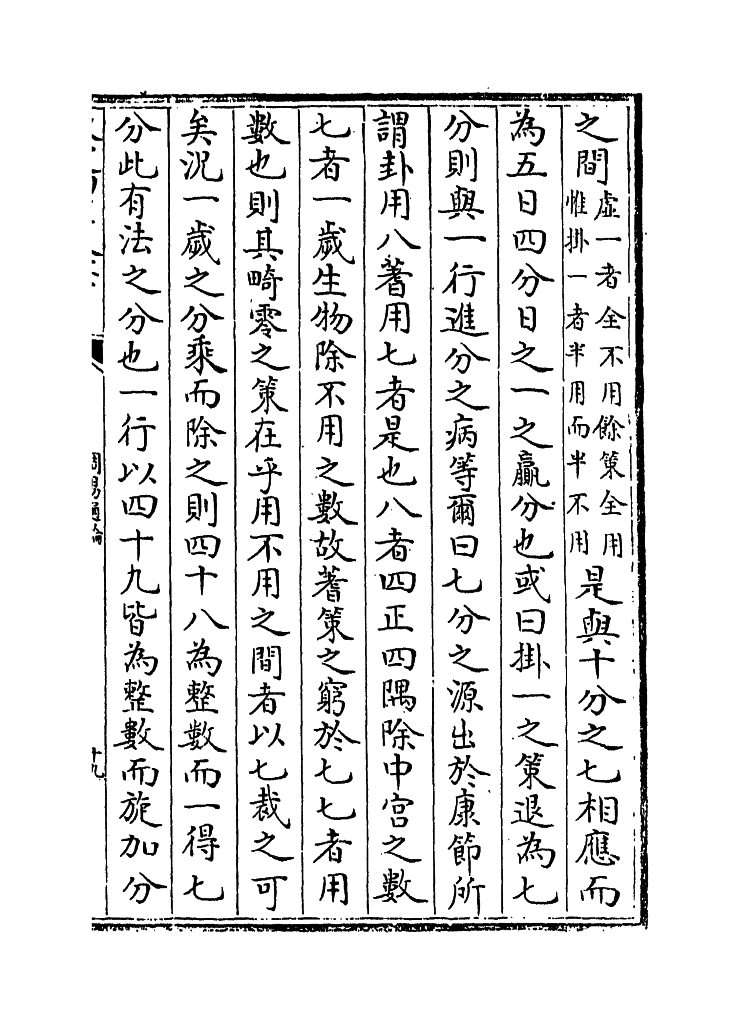 之間虛一者全不用餘策全用惟掛一者半用而半不用是與十分之七相應而
為五日四分日之一之贏分也或曰掛一之策退為七
分則與一行進分之病等爾曰七分之源出於康節所
謂卦用八蓍用七者是也八者四正四隅除中宮之數
七者一歲生物除不用之數故蓍策之窮於七七者用
數也則其畸零之策在乎用不用之間者以七裁之可
矣況一歲之分乘而除之則四十八為整數而一得七
分此有法之分也一行以四十九皆為整數而旋加分
周易通論
十九